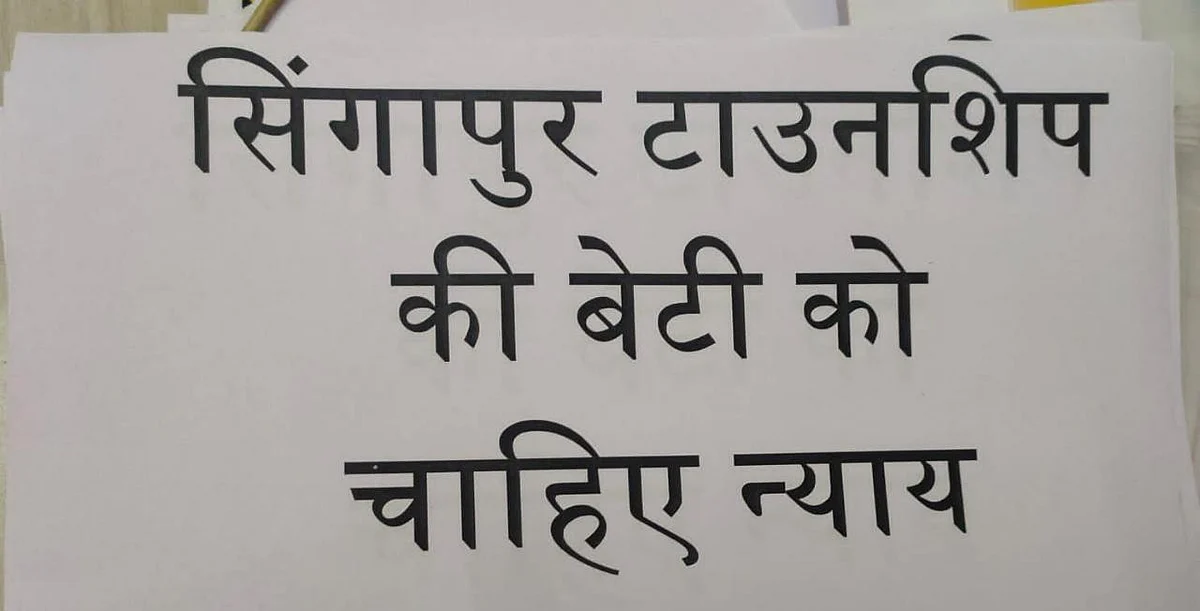 सिंगापुर टाउनशिप
की बेटी को
चाहिए न्याय